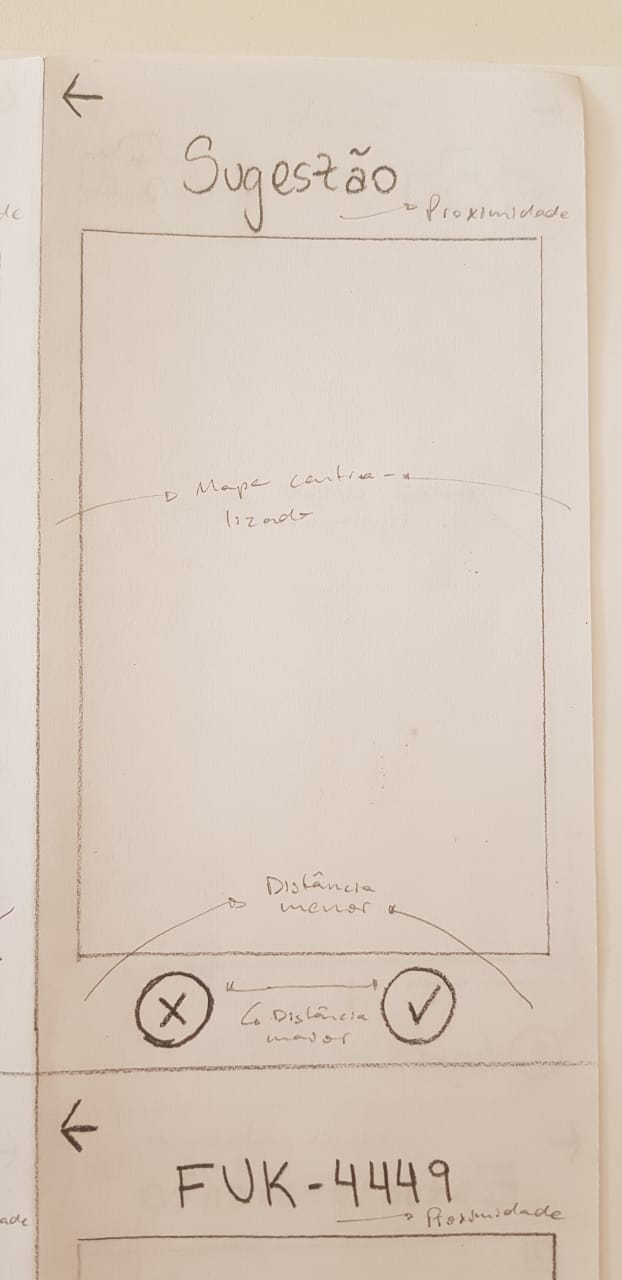 Sugestão
Proximidade
de
Mapa centra-
lizado
Distância
menor
Distância
maior
FUK-4449
Proximidade
ade